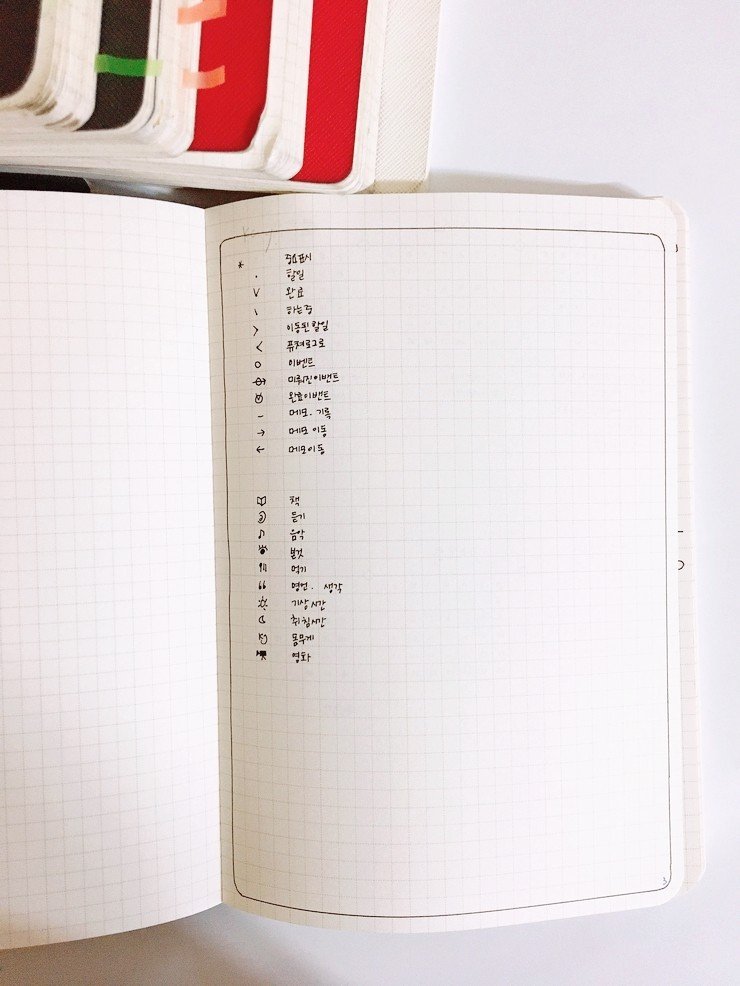 * 중요표시
· 할일
V 완료
\ 하는중
> 이동된할일
< 퓨쳐로그로
○ 이벤트
미뤄진이밴트
완료이밴트
- 메모. 기록
→ 메모 이동
← 메모이동
책
듣기
♪ 음악
볼것
먹기
❝ 명언. 생각
기상시간
☾ 취침시간
몸무게
영화
3